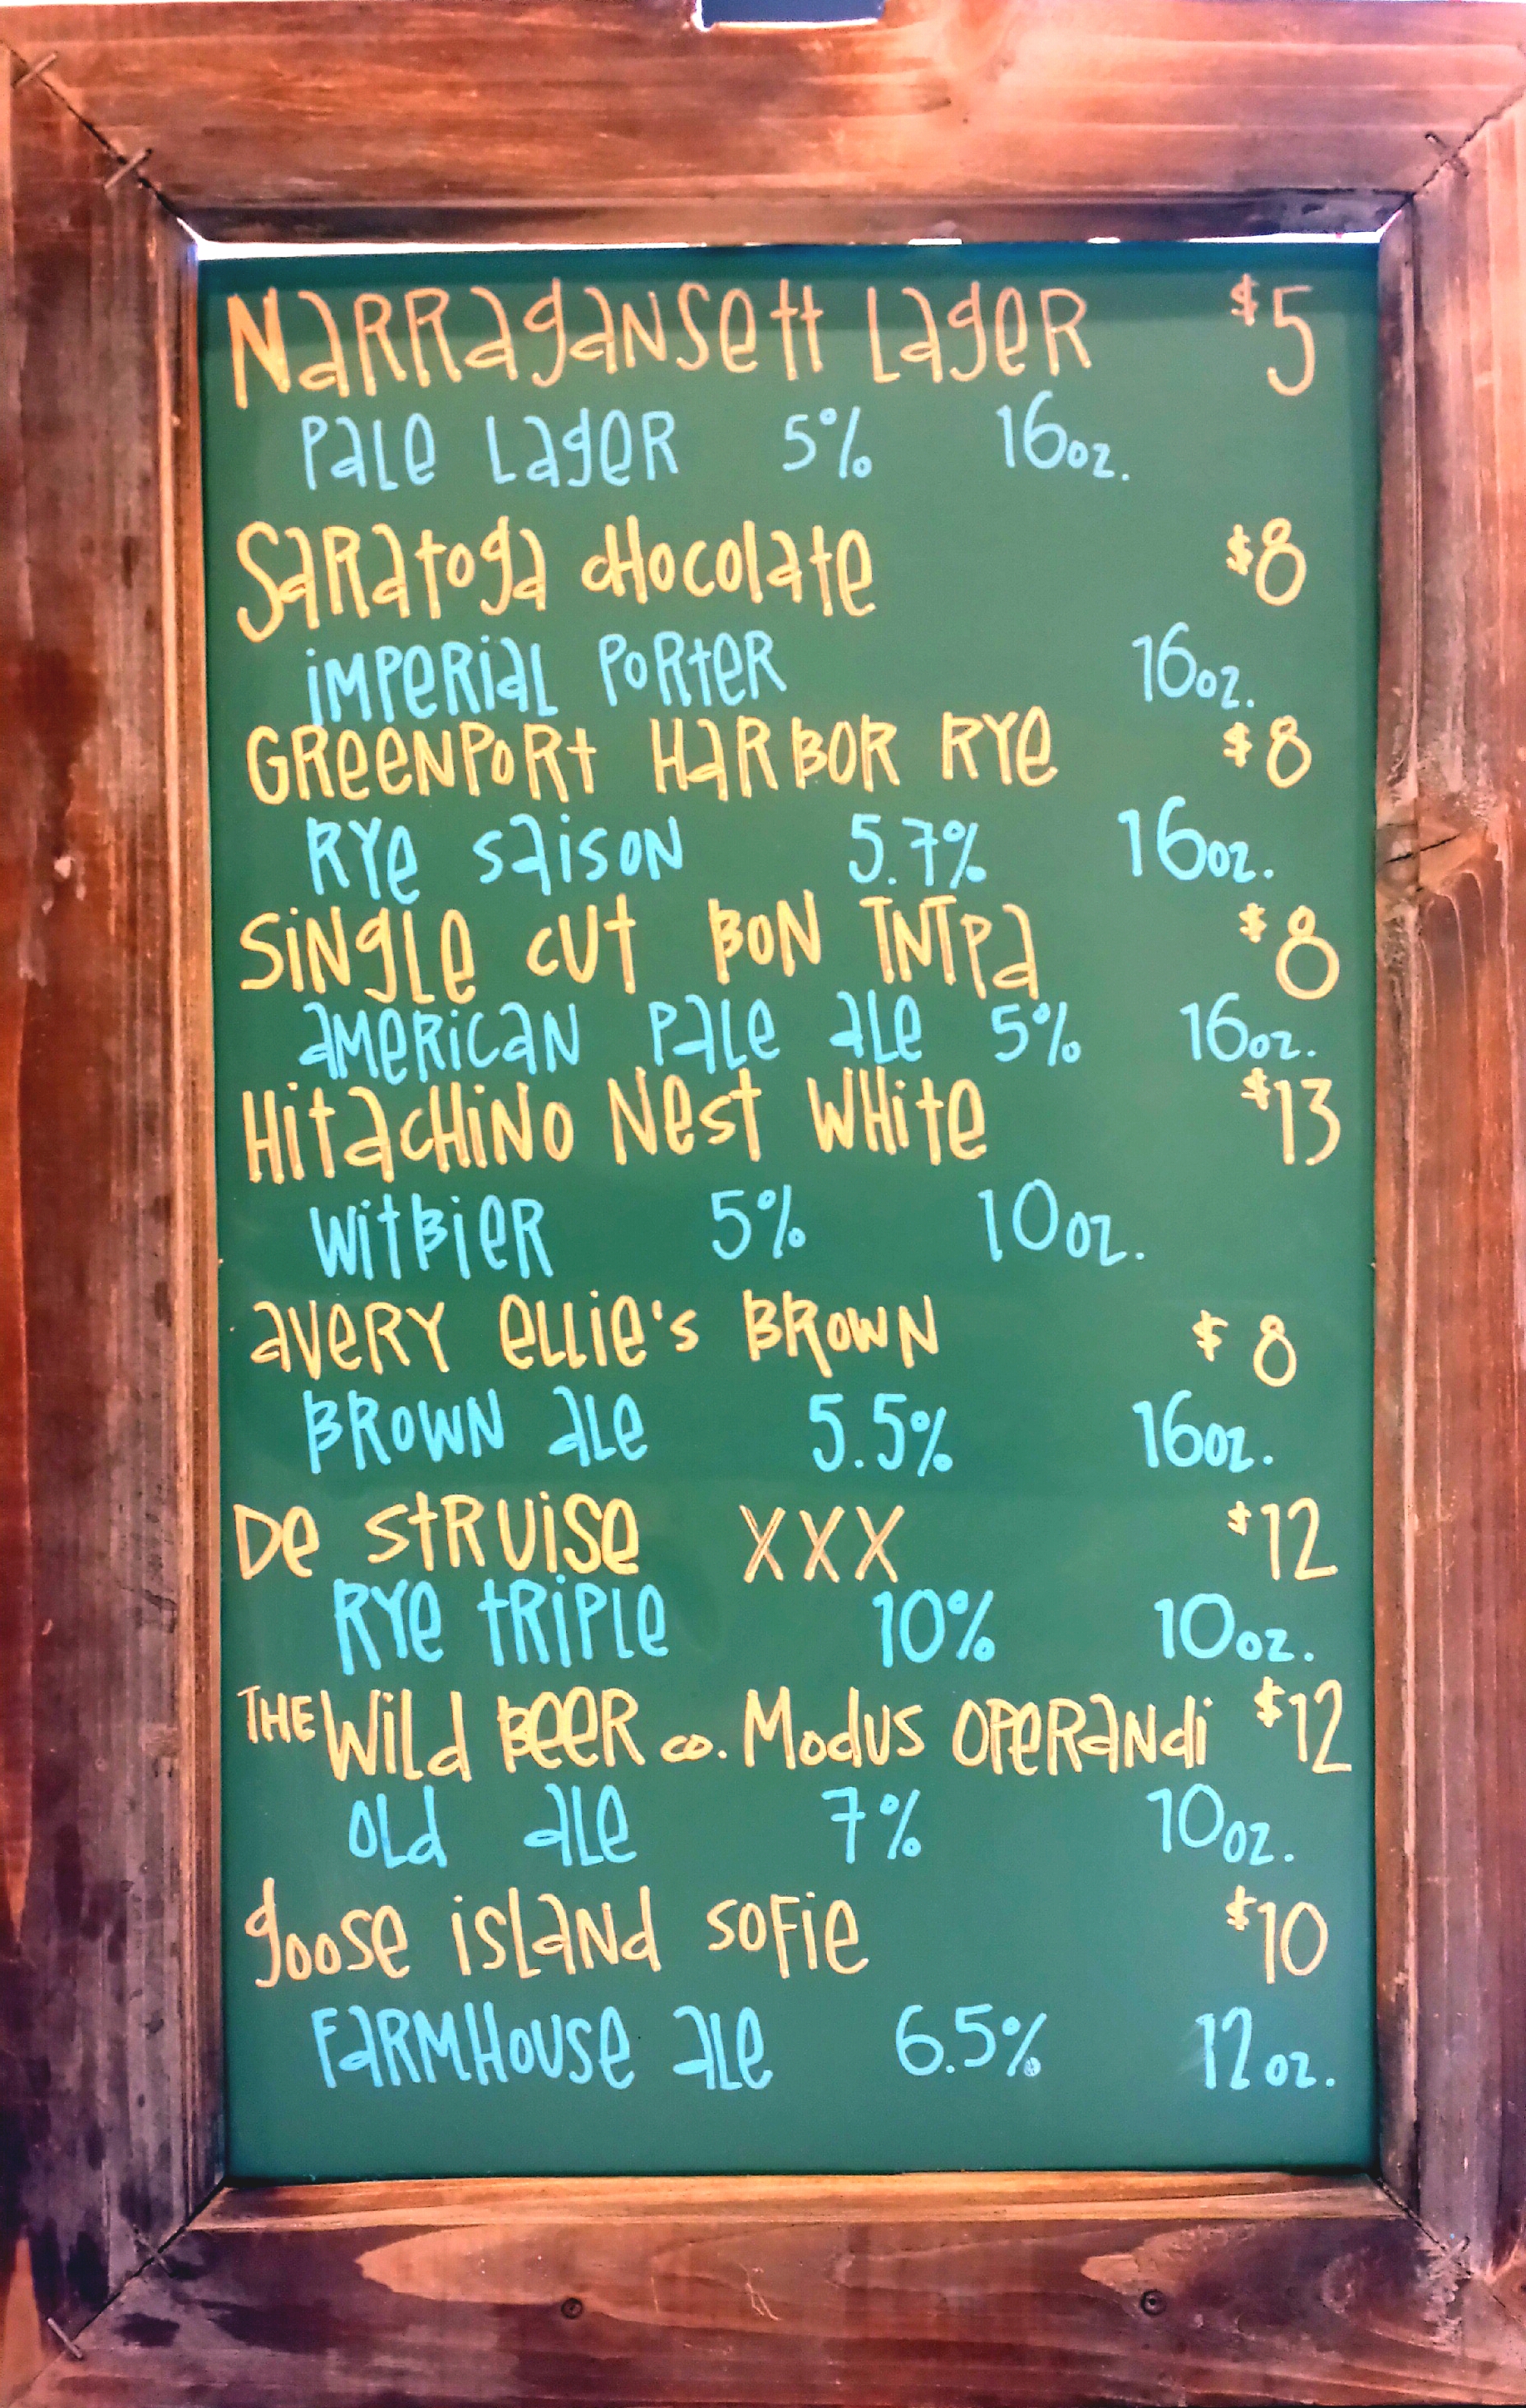 Narragansett Lager $5
Pale Lager 5% 16oz.
Saratoga Chocolate $8
Imperial Porter 16oz.
Greenport Harbor Rye $8
Rye Saison 5.7% 16oz.
Single Cut Bon TNTPA $8
American Pale Ale 5% 16oz.
Hitachino Nest White $13
Witbier 5% 10oz.
Avery Ellie's Brown $8
Brown Ale 5.5% 16oz.
De Struise XXX $12
Rye Triple 10% 10oz.
The Wild Beer Co. Modus Operandi $12
Old Ale 7% 10oz.
Goose Island Sofie $10
Farmhouse Ale 6.5% 12oz.